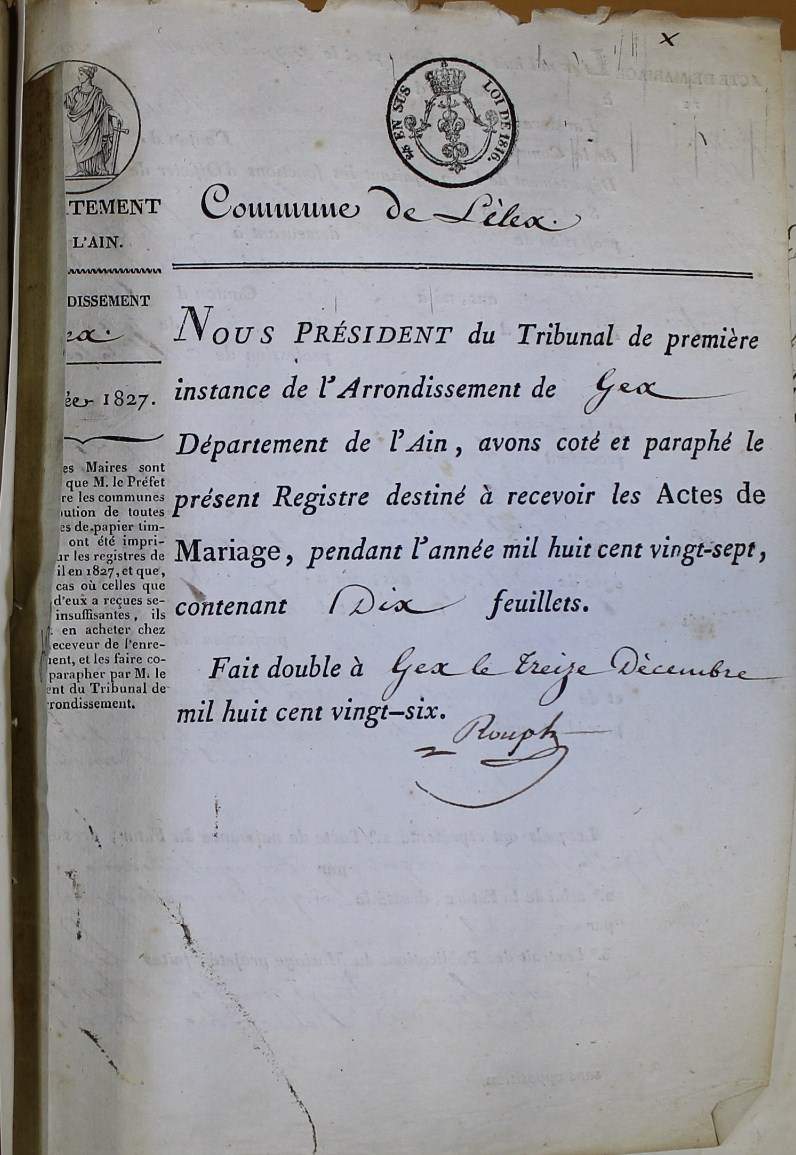 EN SUS LOI DE 1816.
TEMENT
L'AIN.
DISSEMENT
1827.
es Maires sont
que M. le Préfet
re les communes
ution de toutes
es de papier tim-
ont été impri-
ur les registres de
il en 1827, et que,
cas où celles que
d'eux a reçues se-
insuffisantes, ils
en acheter chez
eceveur de l'enre-
ment, et les faire co-
parapher par M. le
ent du Tribunal de
rondissement.
Commune de Lélex.
NOUS PRÉSIDENT du Tribunal de première
instance de l'Arrondissement de Gex
Département de l'Ain, avons coté et paraphé le
présent Registre destiné à recevoir les Actes de
Mariage, pendant l'année mil huit cent vingt-sept,
contenant Dix feuillets.
Fait double à Gex le treize Décembre
mil huit cent vingt-six.
Rouph